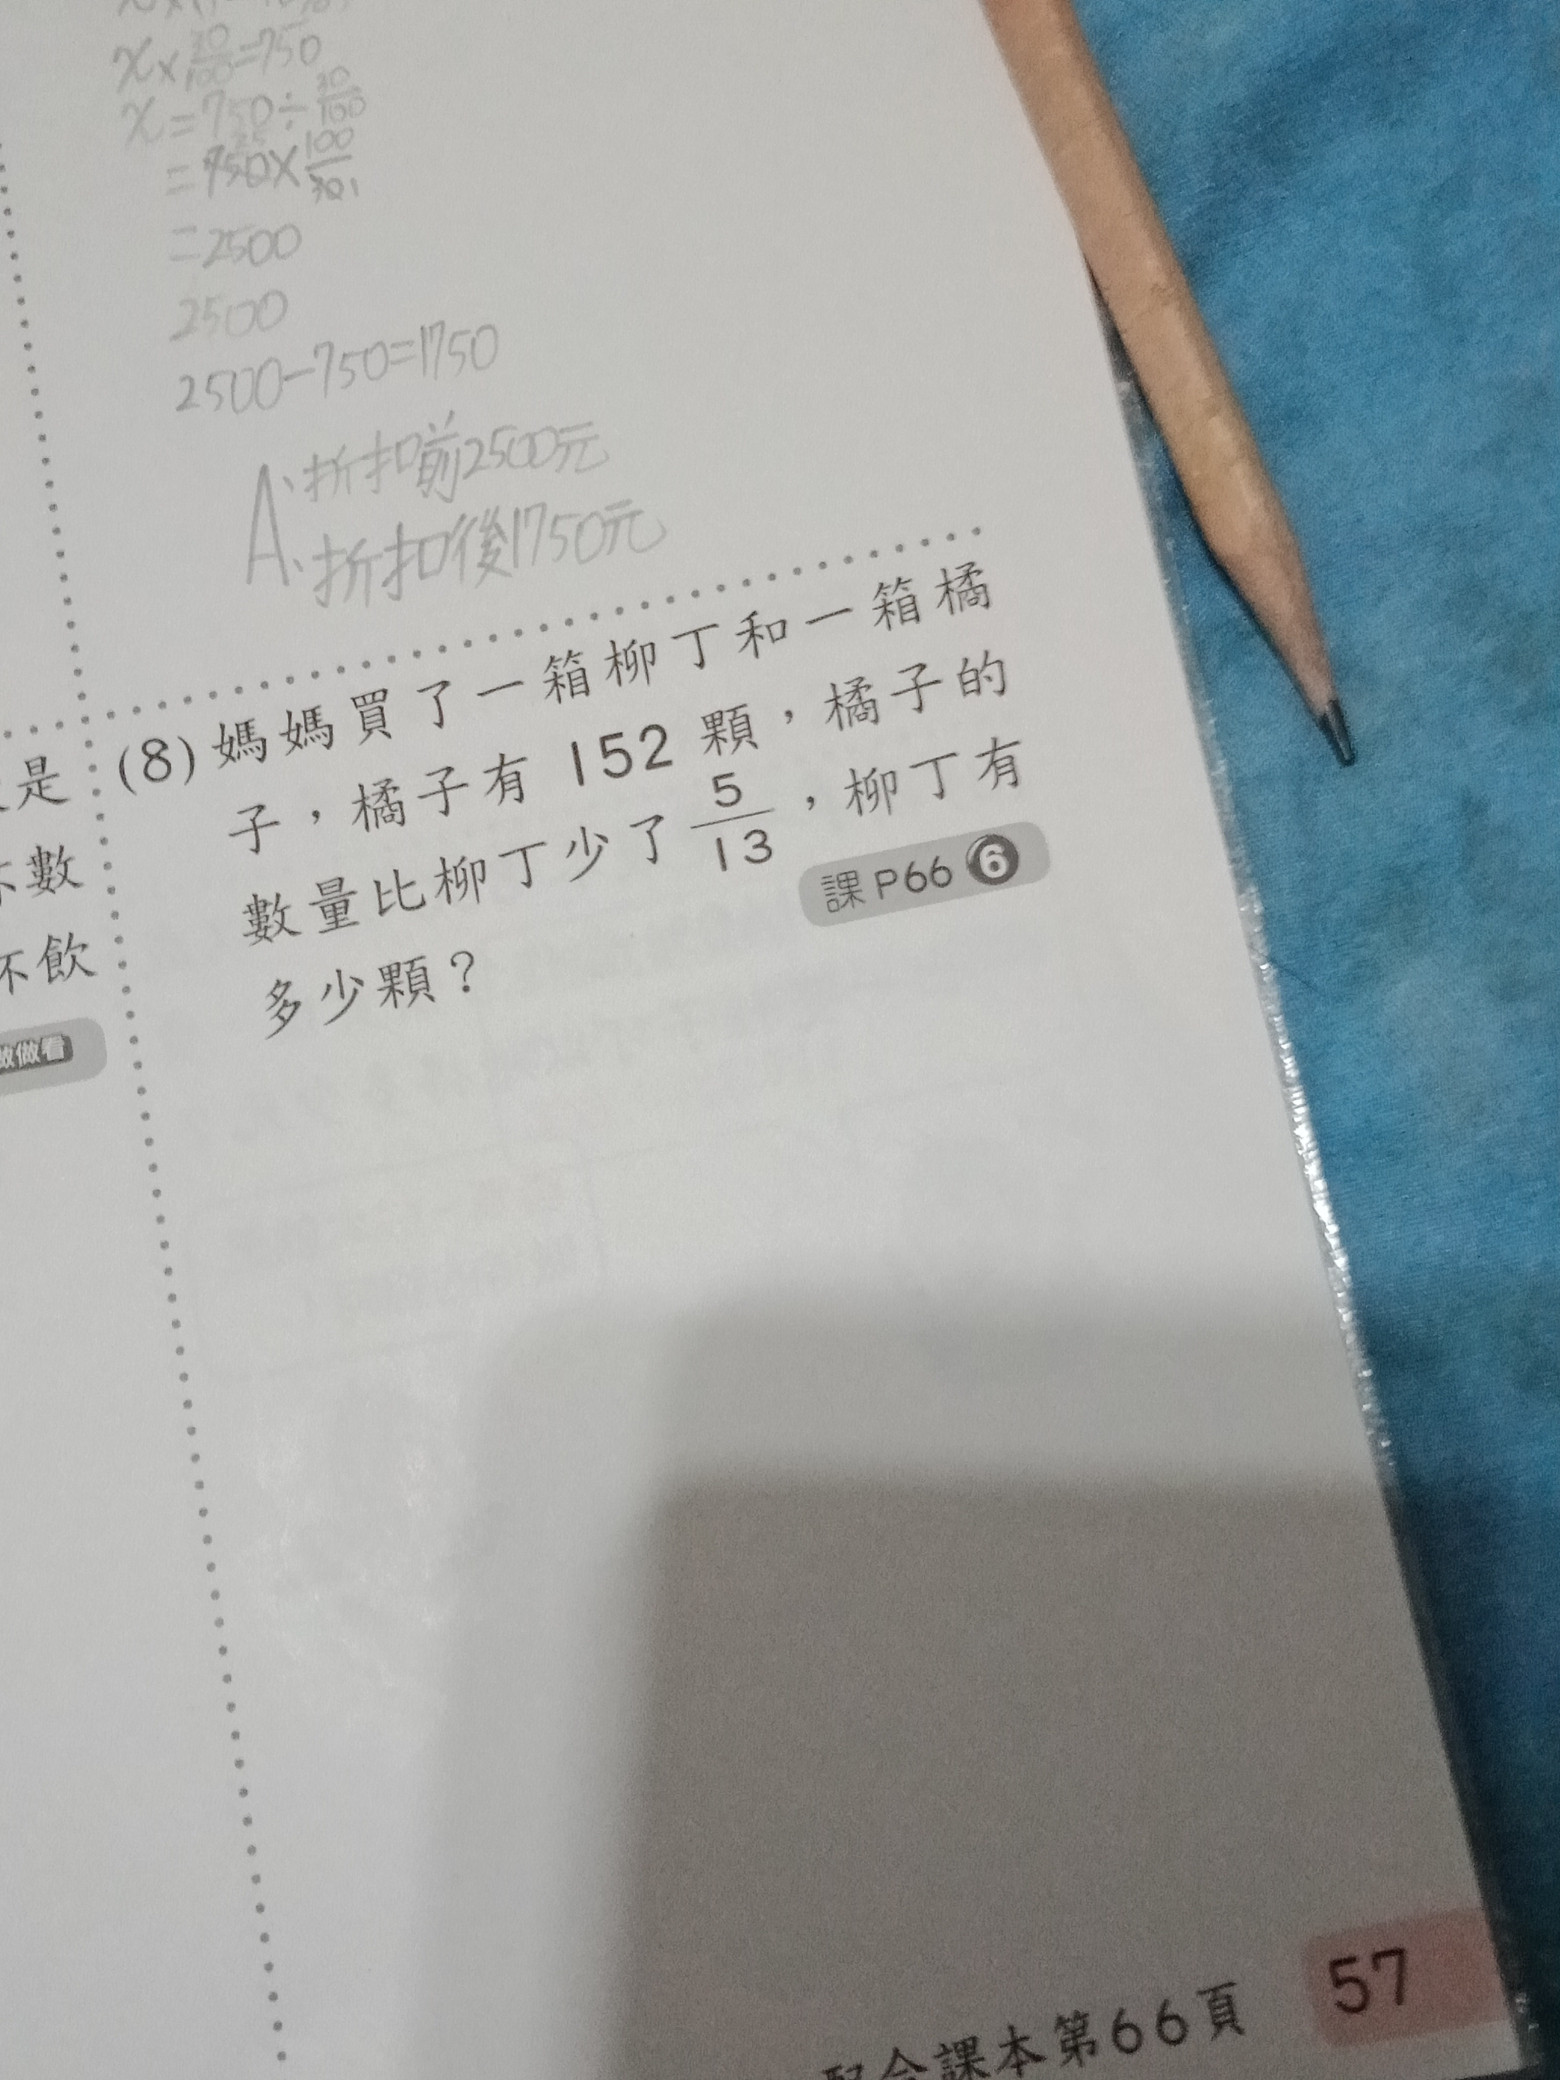 x×30/100=750
x=750÷30/100
25
=750×100/30 1
=2500
2500
2500-750=1750
A、折扣前2500元
A、折扣後1750元
是
數
杯飲
做做看
(8)媽媽買了一箱柳丁和一箱橘
子，橘子有152顆，橘子的
數量比柳丁少了5/13，柳丁有
多少顆？
課P66 6
配合課本第66頁
57